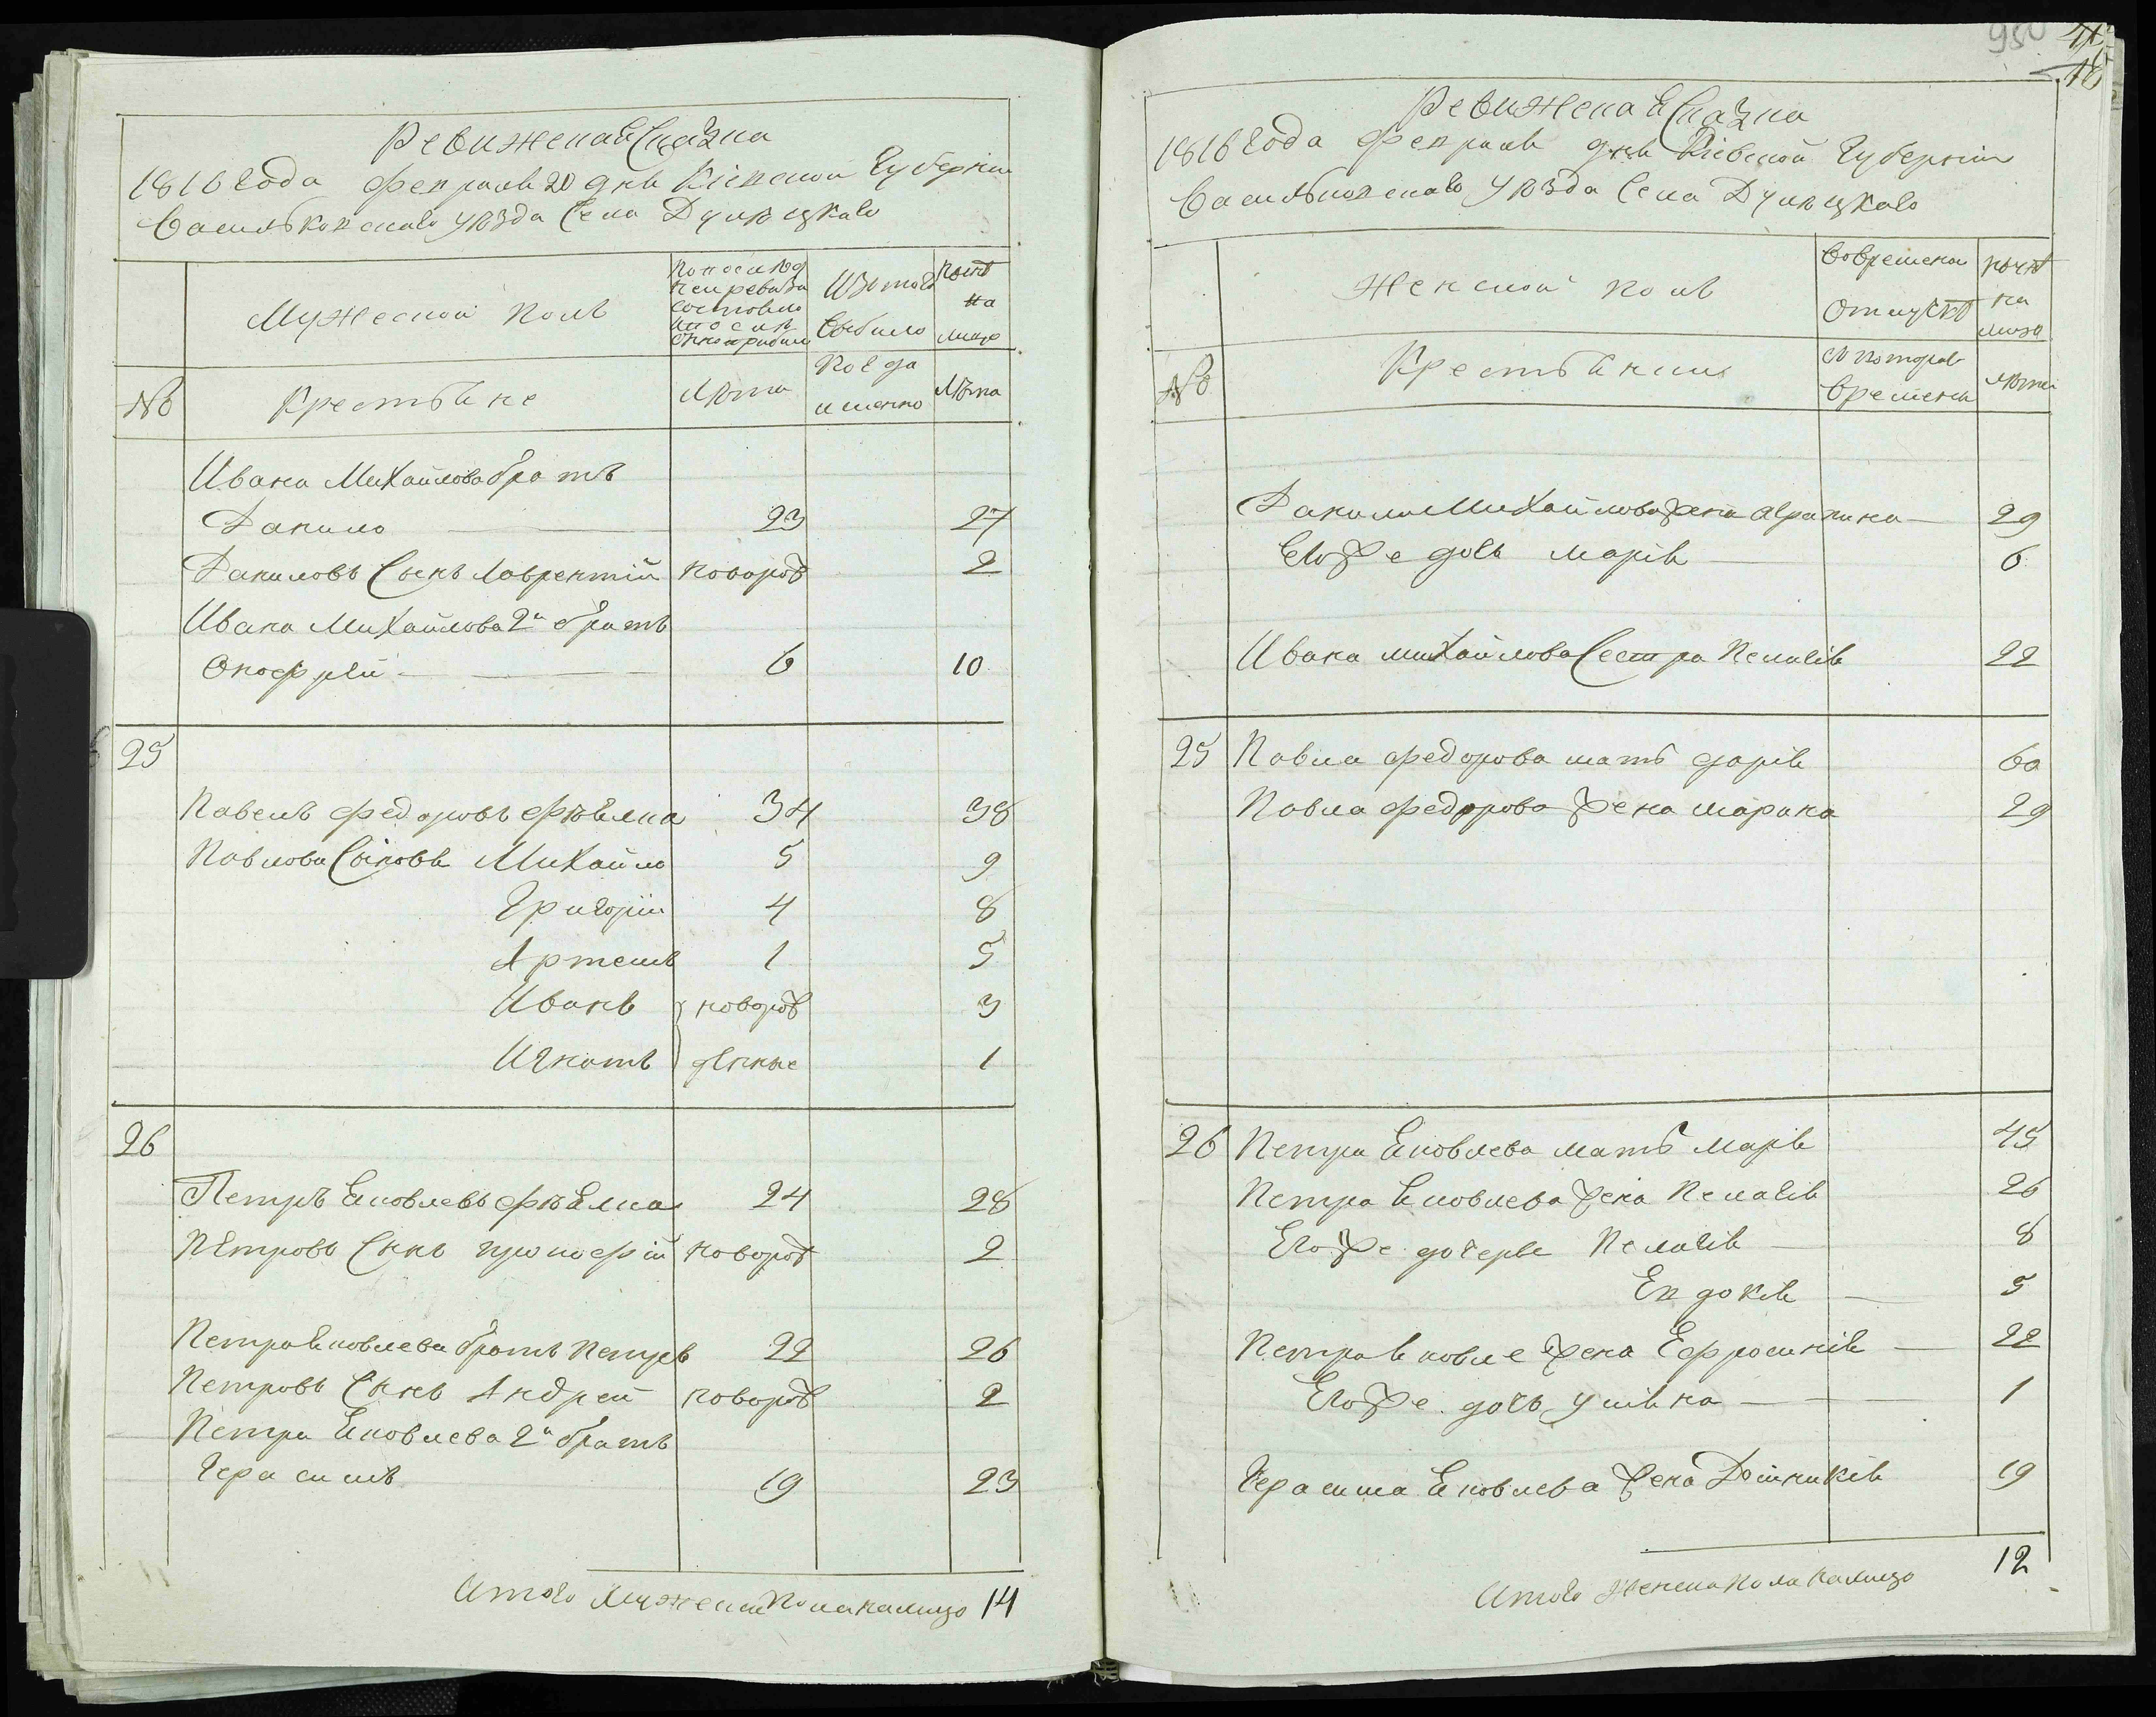 Ревижская Сказка
1816 Года февраля 20 дня Кіевской Губерніи
Васильковского уѣзда Села Дулѣцкаго
Мужеской полъ
По последней ревизіи состояло и после оной прибыло
Изтого выбыло
Нынѣ на лицо
№
Крестьяне
Лѣта
Когда именно
Лѣта
Ивана Михайлова братъ
Данило 23 27
Даниловъ Сынъ Лаврентій новорож 2
Ивана Михайлова 2й братъ
Онофрѣй 6 10
25
Павелъ федоровъ фіялка 34 38
Павлови Сыновья Михайло 5 9
Григорій 4 8
Артемъ 1 5
Иванъ новорож 3
Игнатъ денные 1
26
Петръ Яковлевъ фіялка 24 28
Петровъ Снъ прокофій новорож 2
Петра Яковлева братъ Петръ 22 26
Петровъ Снъ Андрей новорож 2
Петра Яковлева 2й братъ
Герасимъ 19 23
Итого Мужеска Пола налицо 14
950
18
Ревижская Сказка
1816 Года февраля дня Кіевской Губерніи
Васильковскаго уѣзда Села Дулѣцкаго
Женской полъ
Вовременной отлучкѣ
нынѣ на лицо
№
Крестьянки
Съ которого времени
Лѣта
Данила Михайлова жена Агрипина 29
Егоже дочь марія 6
Ивана михайлова Сестра Пелагія 22
25 Павла федорова мать дарія 60
Павла федорова жена марина 29
26 Петра Яковлева мать марія 45
Петра Яковлева жена Пелагія 26
Егоже дочеря Пелагія 8
Евдокія 5
Петра Яковле жена Ефросинія 22
Егоже дочь уліяна 1
Герасима Яковлева жена Домникія 19
Итого Женска Пола налицо 12